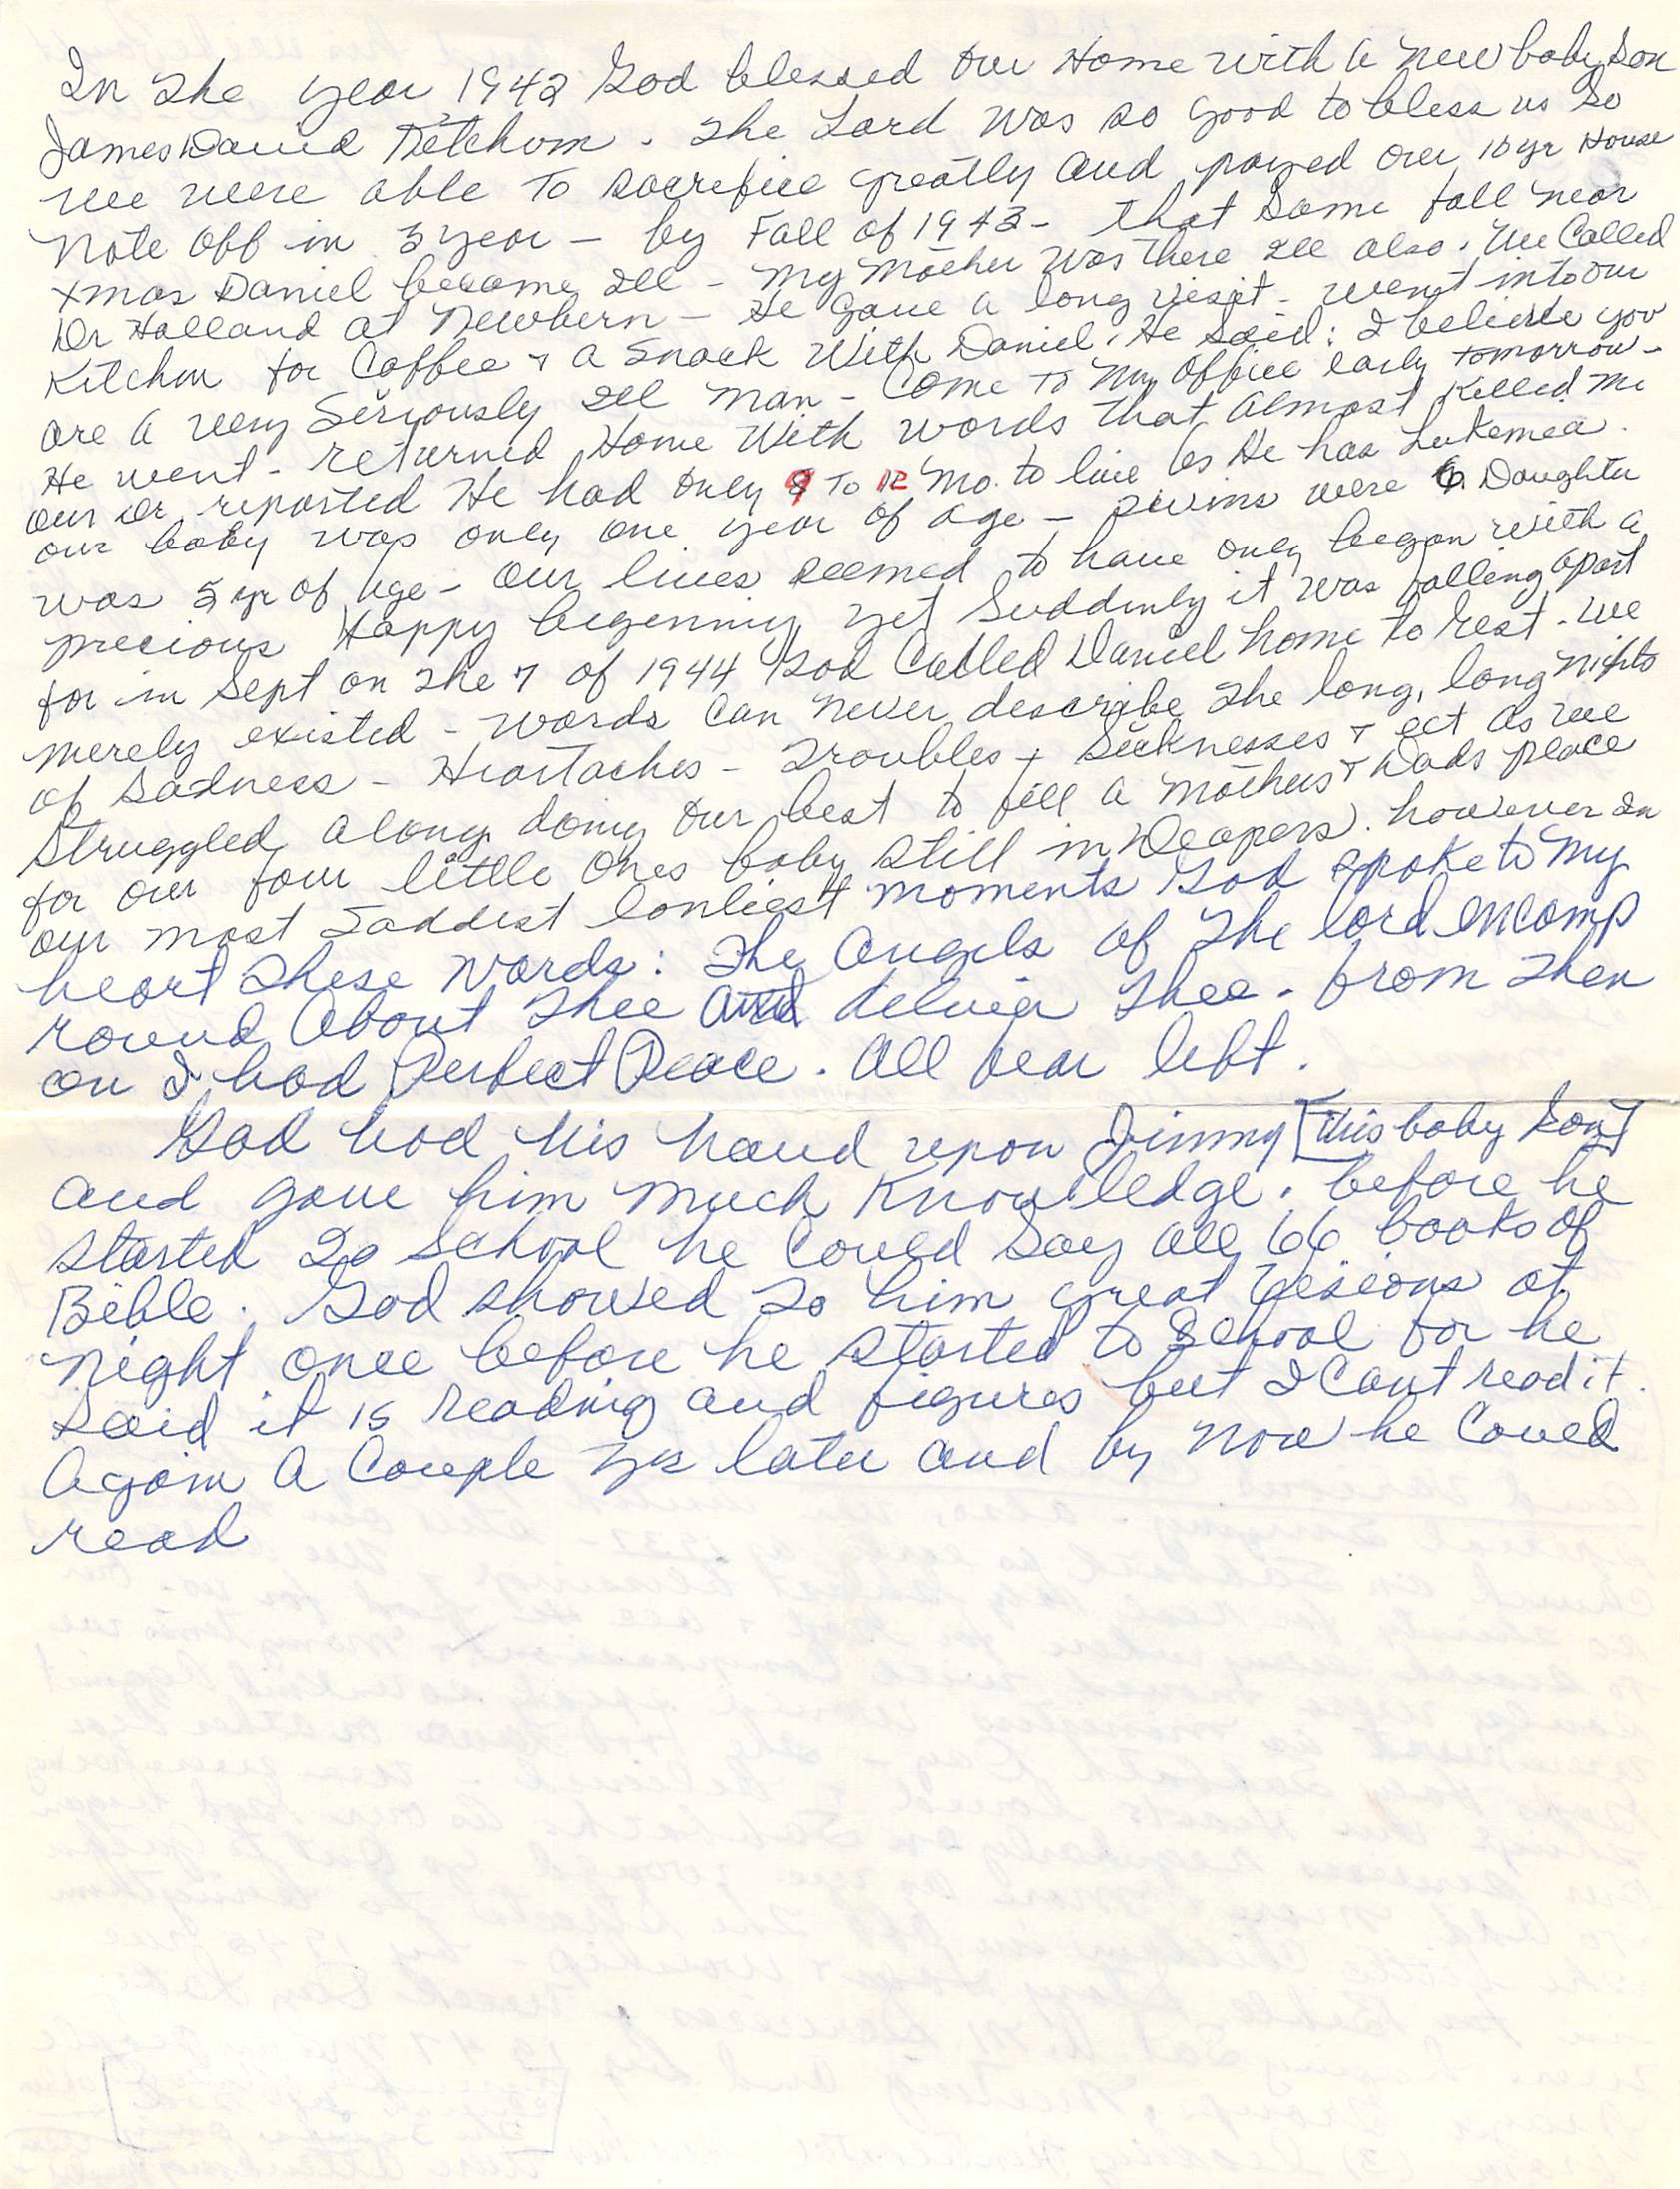 In The year 1942 God blessed our Home with a new baby Son
James David Ketchum. The Lord was so good to bless us so
we were able To sacrifice greatly and payed our 10 yr House
Note off in 3 year - by Fall of 1943 - that same fall near
xmas Daniel became Ill - My Mother was There Ill also. We Called
Dr Holland at Newbern - He gave a long visit - went into our
Kitchen for Coffee + a Snack With Daniel. He said: I believe you
are a very Seriously Ill man - Come To My Office early tomorrow -
He went - returned Home With words that almost Killed me
our Dr reported He had only 9 To 12 Mo. to live as He has Lukemea.
our baby was only one year of age - twins were 6 Daughter
was 5 yr of age - Our lives seemed to have only began with a
precious Happy beginning yet Suddenly it was falling apart
for in Sept on The 7 of 1944 God Called Daniel home to rest. We
merely existed - Words Can never describe The long, long nights
of Sadness - Heartaches - Troubles + Sicknesses + ect as we
Struggled along doing our best to fill a Mothers + Dads place
for our four little ones baby still in Deapers. however In
our most Saddest lonliest moments God spoke to My
heart These Words: The Angels of The lord encamp
round About Thee And deliver Thee. from Then
on I had Perfect Peace. All fear left.
God had his hand upon Jimmy [this baby Son]
and gave him much Knowledge. before he
started To School he Could Say all 66 books of
Bible. God showed To him great Vesions at
night once before he started to School for he
Said it is reading and figures but I Cant read it.
Again a Couple yrs later and by now he Could
read